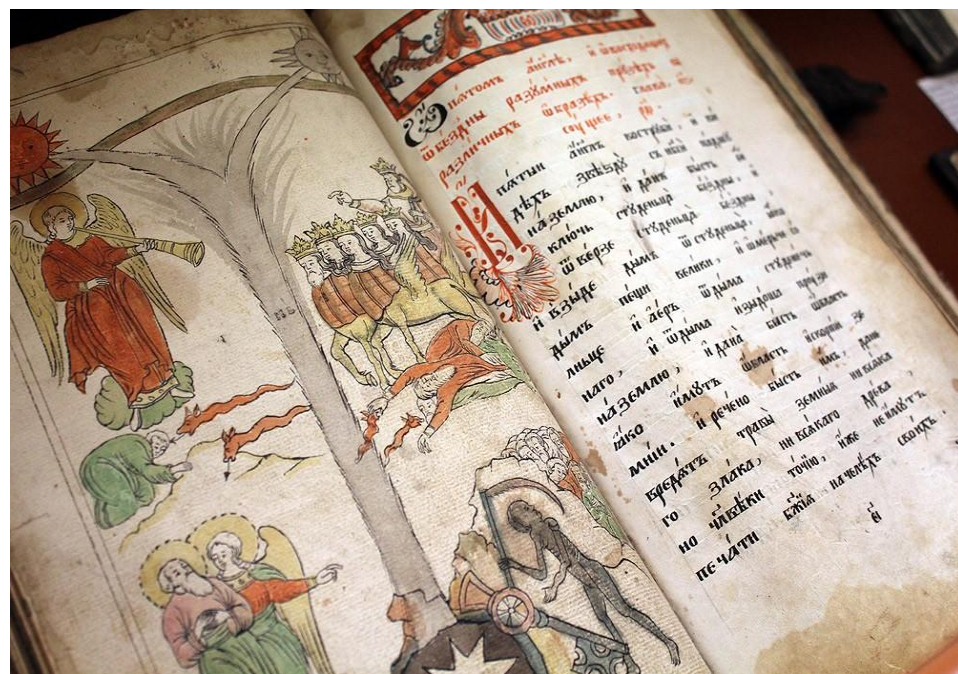 пѧтомъ а҆́гг҃лѣ, и҆
ѿ бездны разꙋмныхъ прꙋзѣхъ
различныхъ ѡ҆бразѣхъ. глава
Пѧ́тыи а҆́гг҃лъ вострꙋбѝ, и҆ ви
дѣхъ ѕвѣздꙋ̀ съ нб҃сѝ падшꙋ
на́ землю, и҆ да́нъ бы́сть
клю́чь стꙋденца̀ бе́здны, и҆
ѿве́рзе стꙋдене́цъ бе́здны
и҆ взы́де ды́мъ ѿ стꙋденца̀,
ды́мъ пе́щи вели́ки, и҆ ѡ҆ме́рче со
лнце и҆ а҆е́ръ ѿ ды́ма стꙋдене́ч
наго, и҆ ѿ ды́ма и҆зыдо́ша прꙋ́зи
на́ землю, и҆ дана̀ бы́сть ѡ҆́бласть
ꙗ҆́ко и҆́мꙋтъ ѡ҆́бласть скорпі́и зе
мні́и. и҆ рече́но бы́сть и҆̀мъ, да не
вредѧ́тъ травы̀ земны́ѧ ни всѧ́ка
го зла́ка, ни всѧ́каго дре́ва
но чл҃вѣ́ки то́чїю, и҆́же не и҆́мꙋтъ
печа́ти бж҃їѧ на челѣ́хъ свои́хъ.